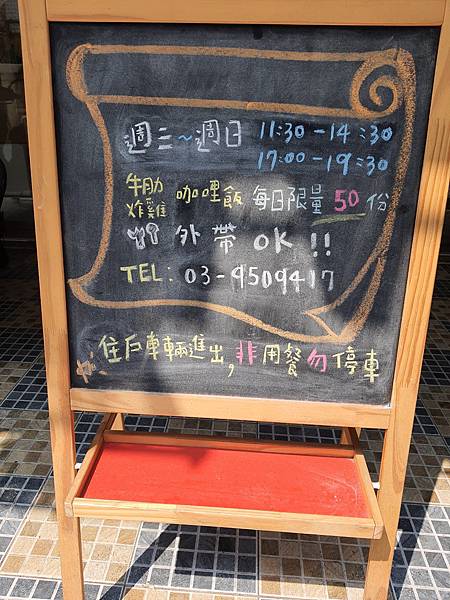 週三~週日 11:30-14:30
17:00-19:30
牛肋
炸雞 咖哩飯 每日限量 50 份
外帶 OK!!
TEL: 03-9509417
住戶車輛進出,非用餐勿停車